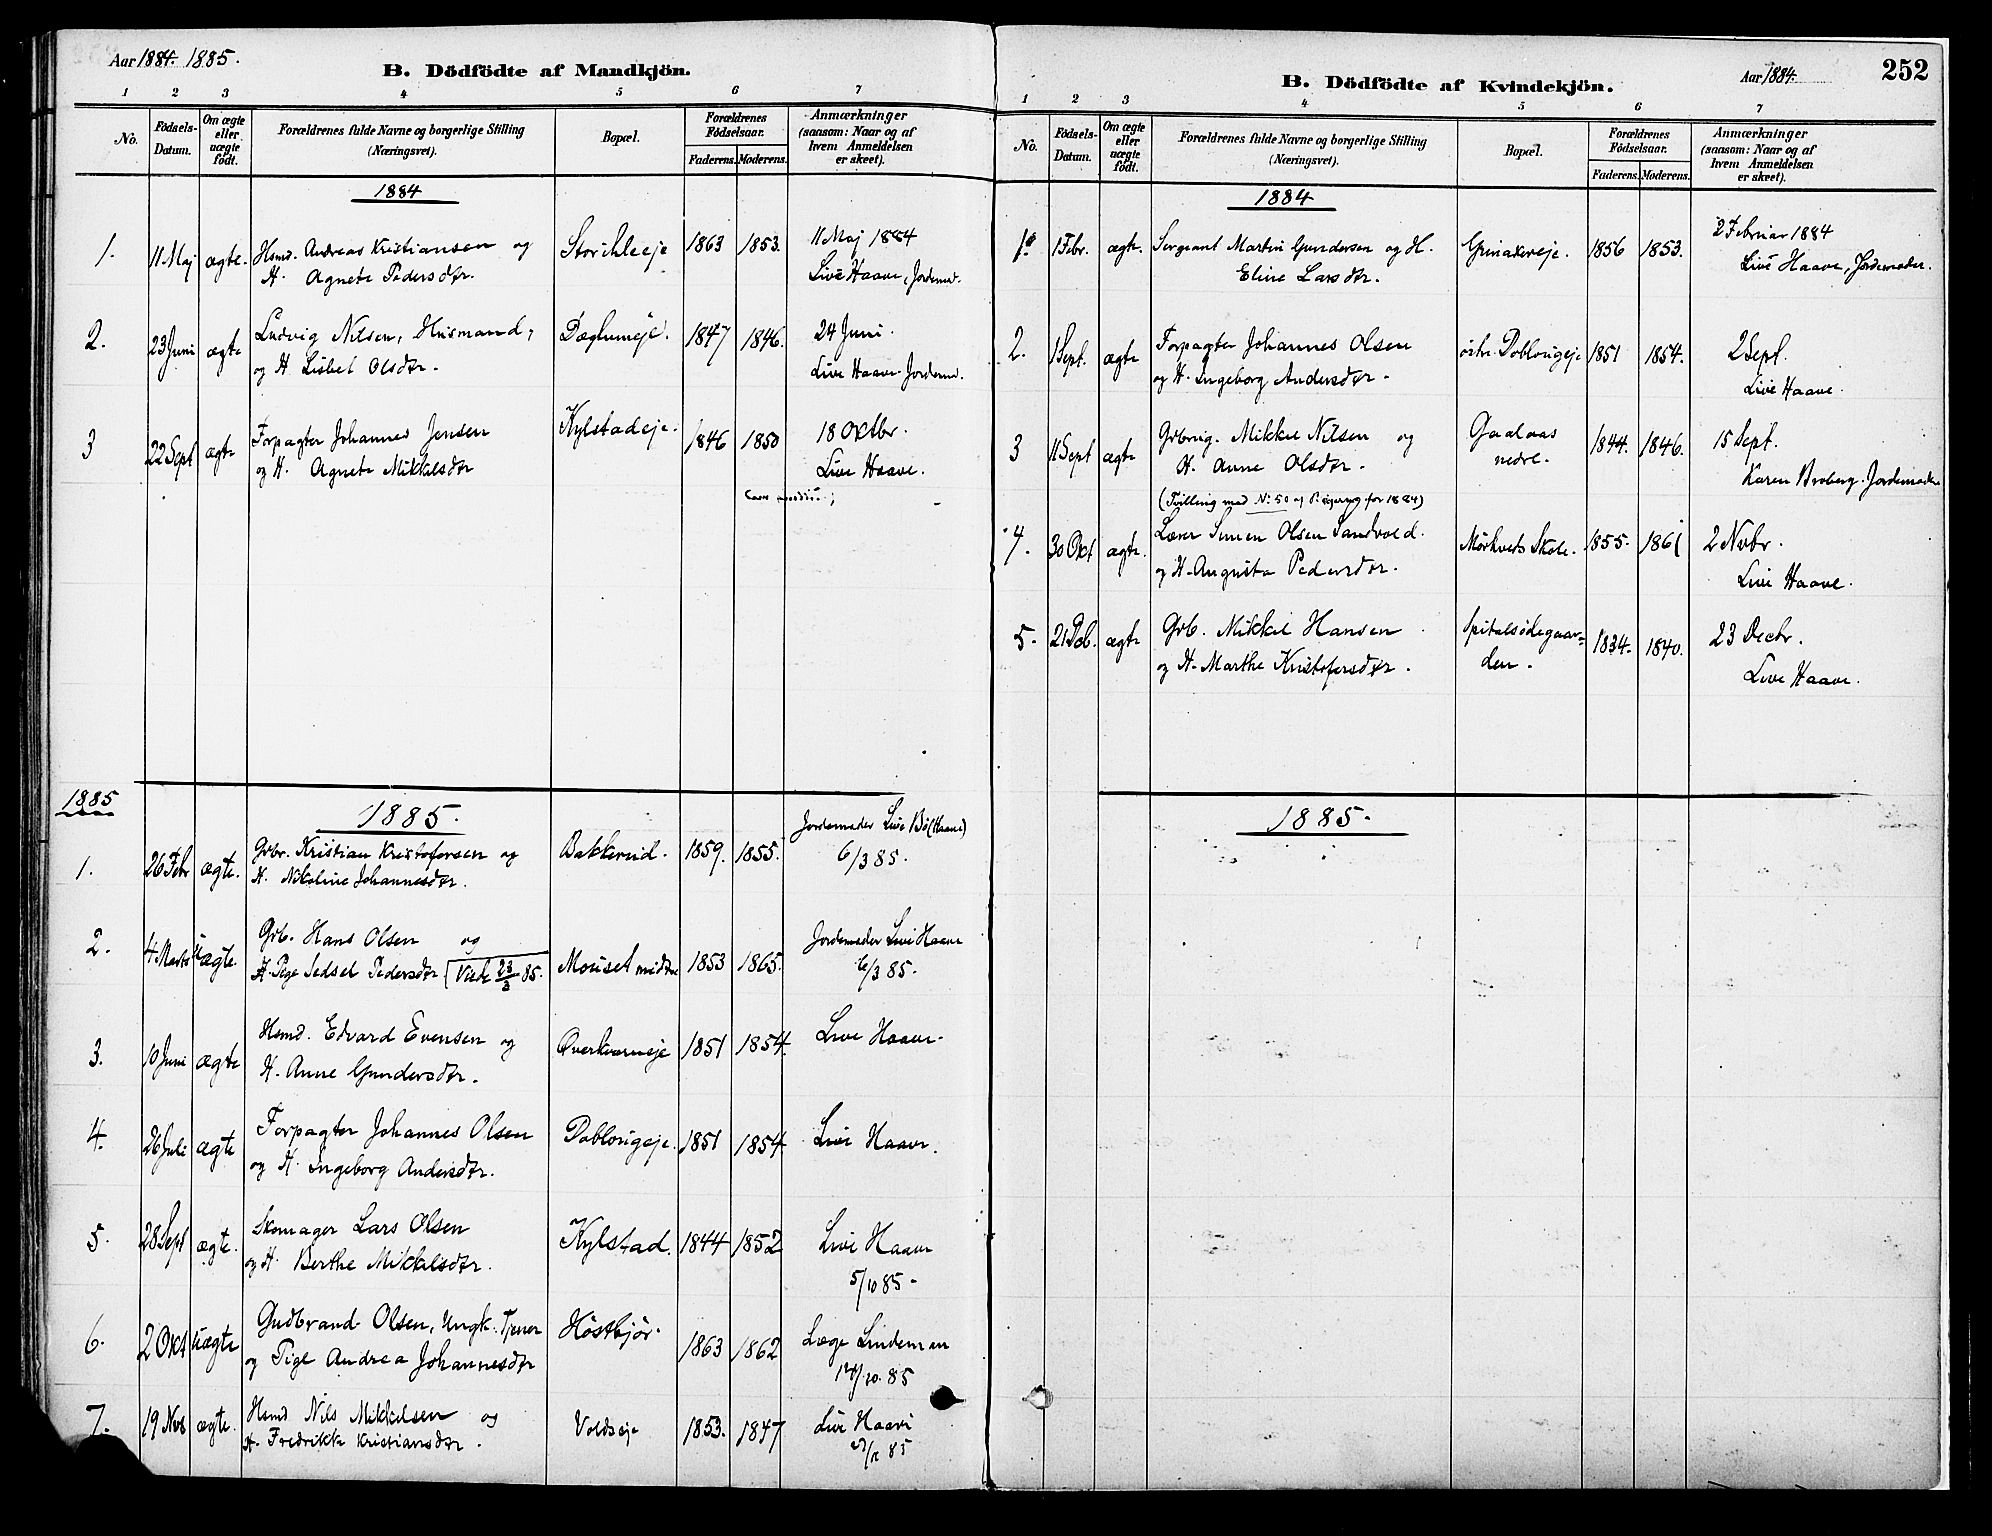 Aar 1884. 1885.
B. Dödfödte af Mandkjön.
1 2 3 4 5 6 7
No. Födsels-Datum. Om ægte eller uægte födt. Forældrenes fulde Navne og borgerlige Stilling (Næringsvei). Bopæl. Forældrenes Födselsaar. Faderens. Moderens. Anmærkninger (saasom: Naar og af hvem Anmeldelsen er skeet).
1884
1. 11 Maj ægte. Hsmd. Andreas Kristiansen og Storihleeje 1863 1853. 11 Maj 1884
H. Agnete Pedersdtr. Live Haave, Jordemd.
2. 23 Juni ægte Ludvig Nilsen, Husmand, 1847 1846. 24 Juni.
og H. Lisbet Olsdtr. Live Haave Jordemd.
3 22 Sept ægte Forpagter Johannes Jensen Kylstadeje. 1846 1850 18 Oktbr.
og H. Agnete Mikkelsdtr Live Haave.
1885
1885.
Jordemoder Live Bö (Haave)
1. 26 Febr ægte. Gbr. Kristian Kristofersen og Bakkerud. 1859. 1855. 6/3 85.
H. Nikoline Johannesdtr.
2. 4 Marts uægte. Grb. Hans Olsen og Jordemoder Live Haave
Pige Sedsel Pedersdtr (Viede 23/3 85. Mouset midtre 1853 1865. 6/3 85.
3. 10 Juni ægte Hsmd. Edvard Evensen og Overkverneje 1851 1854. Live Haave.
H. Anne Gundersdtr.
4. 26 Juli ægte Forpagter Johannes Olsen Doblougeje. 1851 1854 Live Haave.
og H. Ingeborg Andersdtr.
5. 28 Sept ægte. Skomager Lars Olsen Kylstad. 1844 1852 Live Haave
og H. Berthe Mikkelsdtr. 5/10 85.
6. 2 Okt uægte Gudbrand Olsen, Ungk. Tjener Höstbjör. 1863 1862 Læge Lindeman
og Pige Andrea Johannesdtr 10. 85
7. 19 Nvb ægte. Hsmd Nils Mikkelsen og Voldseje 1853. 1847 Live Haave
H. Fredrikke Kristiansdtr. 85
B. Dödfödte af Kvindekjön.
Aar 1884.
252
1 2 3 4 5 6 7
No. Födsels-Datum. Om ægte eller uægte födt. Forældrenes fulde Navne og borgerlige Stilling (Næringsvei). Bopæl. Forældrenes Födselsaar. Faderens. Moderens. Anmærkninger (saasom: Naar og af hvem Anmeldelsen er skeet).
1884
1. 1 Febr. ægte. Sergeant Martin Gundersen og H. Grinakereje. 1856 1853. 2 Februar 1884
Eline Larsdtr. Live Haave, Jordemoder.
2. 1 Sept. ægte Forpagter Johannes Olsen östre Doblougeje 1851 1854. 2 Sept.
og H. Ingeborg Andersdtr. Live Haave.
3 11 Sept ægte Grbrug. Mikkel Nilsen og Gaalaas 1844. 1846. 15 Sept.
H. Anne Olsdtr. nedre. Karen Broberg. Jordemoder
(Tvilling med No 50 af for 1884)
4. 30 Okt ægte. Lærer Simen Olsen Sandvold. Mörkveds Skole. 1855. 1861 2 Nvbr.
og H. Augusta Pedersdtr. Live Haave.
5. 21 Dcb. ægte Grb. Mikkel Hansen Spitalsödegaar- 1834. 1840. 23 Decbr.
og H. Marthe Kristofersdtr. den. Live Haave.
1885.